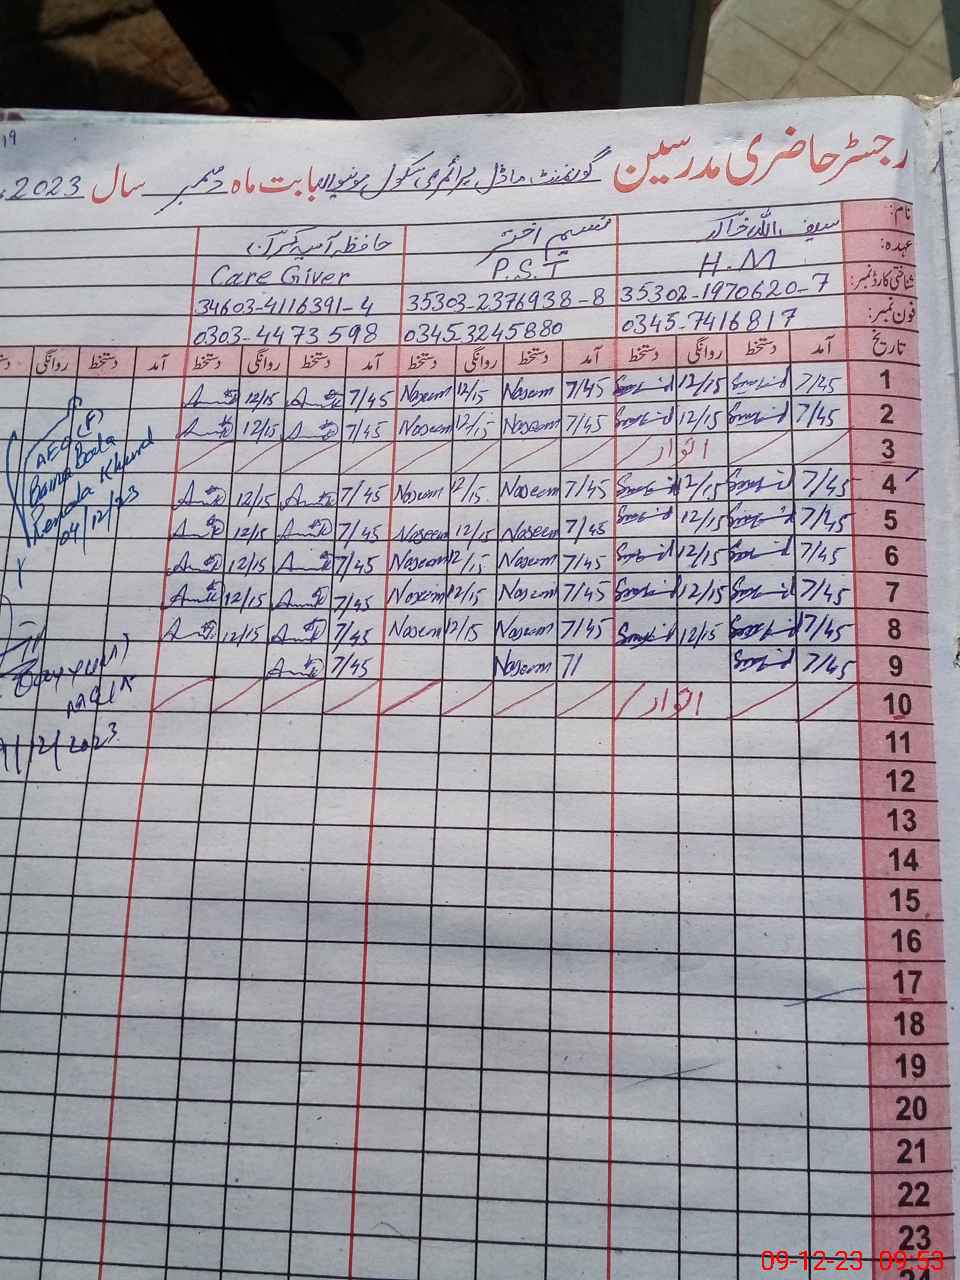 رجسٹر حاضری مدرسین گورنمنٹ ماڈل پرائمری سکول بابت ماہ دسمبر سال 2023
نام: سیف اللہ نسیم اختر حافظہ آسیہ
عہدہ: H.M P.S.T Care Giver
شناختی کارڈ نمبر: 35302-1970620-7 35303-2376938-8 34603-4116391-4
فون نمبر: 0345-7416817 03453245880 0303-4473598
تاریخ آمد دستخط روانگی دستخط آمد دستخط روانگی دستخط آمد دستخط روانگی دستخط آمد دستخط روانگی
1 7/45 12/15 7/45 Naseem 12/15 Naseem 7/45 12/15
2 7/45 12/15 7/45 Naseem 12/15 Naseem 7/45 12/15
3 اتوار
4 7/45 12/15 7/45 Naseem 12/15 Naseem 7/45 12/15
5 7/45 12/15 7/45 Naseem 12/15 Naseem 7/45 12/15
6 7/45 12/15 7/45 Naseem 12/15 Naseem 7/45 12/15
7 7/45 12/15 7/45 Naseem 12/15 Naseem 7/45 12/15
8 7/45 12/15 7/45 Naseem 12/15 Naseem 7/45 12/15
9 7/45 7/ Naseem 7/45
10 اتوار
11
12
13
14
15
16
17
18
19
20
21
22
23
24
19
AEO (F)
04/12/23
/12/2023
09-12-23 09:53